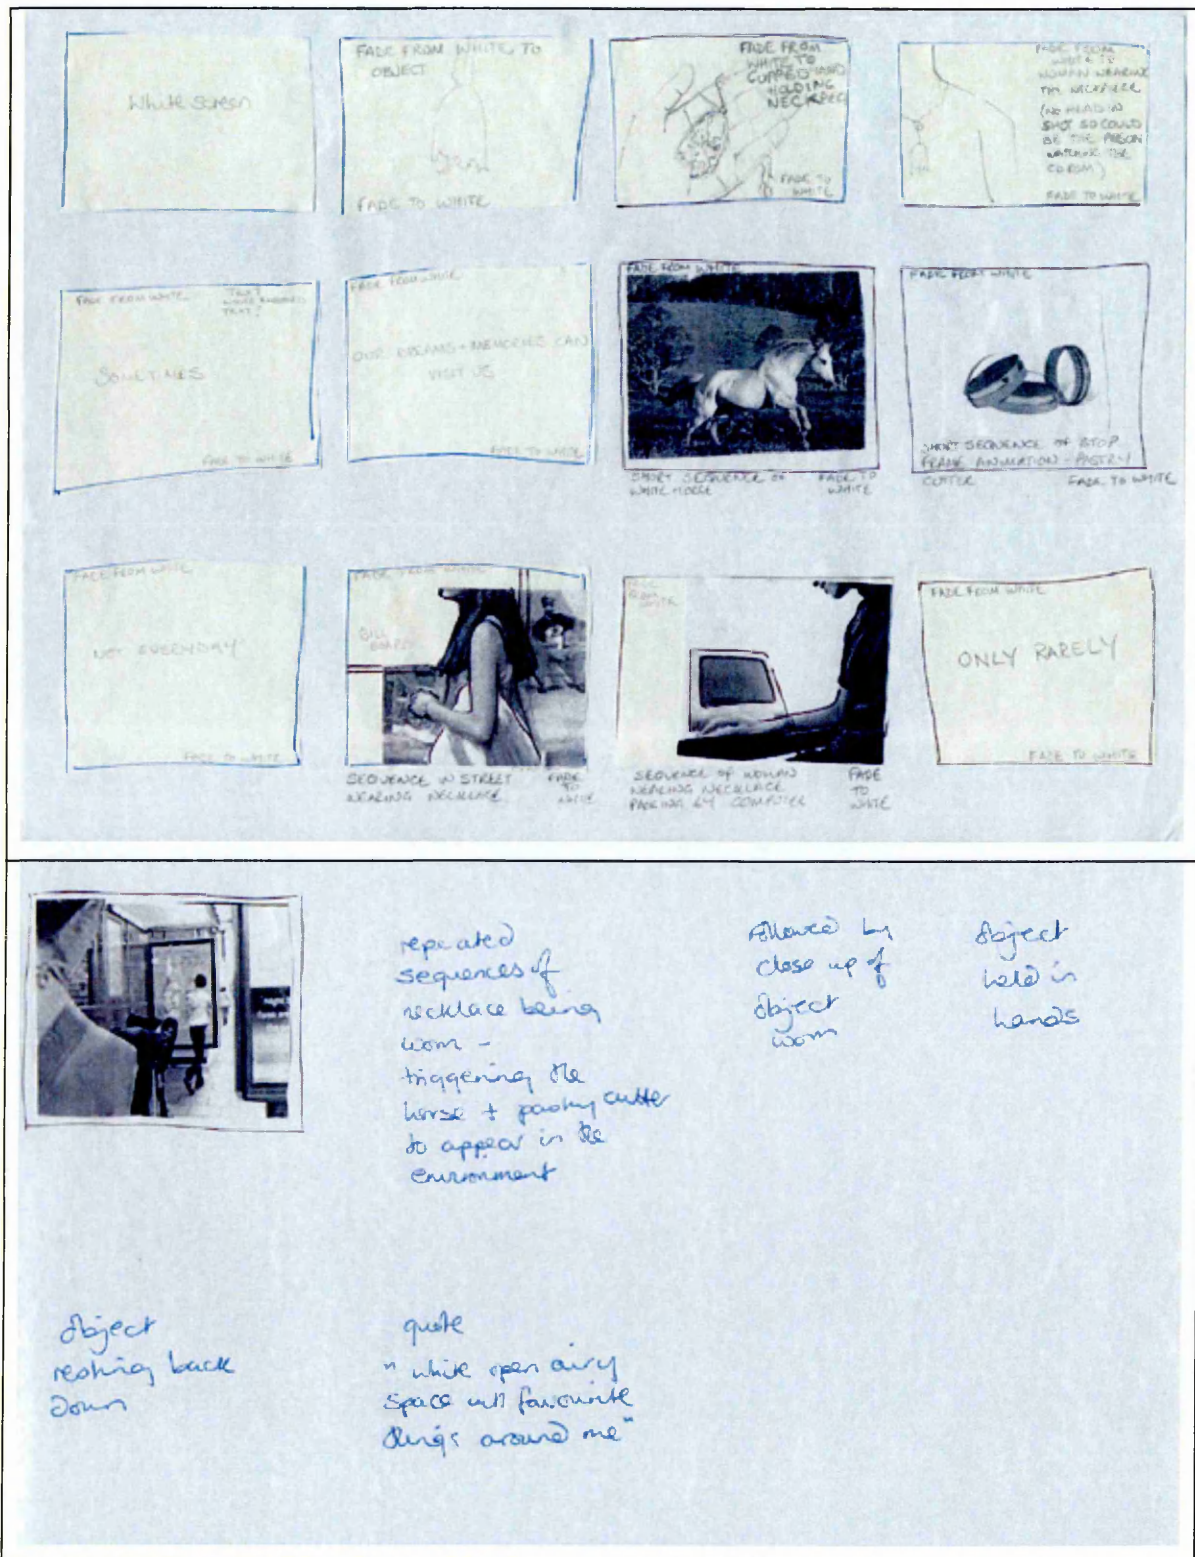 White Screen
FADE FROM WHITE TO
OBJECT
FADE TO WHITE
FADE FROM
WHITE TO
CUPPED HAND
HOLDING
NECKPIECE
FADE TO
WHITE
FADE FROM
WHITE TO
WOMAN WEARING
THE NECKPIECE
(NO HEAD IN
SHOT SO COULD
BE THE PERSON
WATCHING THE
CD ROM)
FADE TO WHITE
FADE FROM WHITE
TEXT
TEXT?
SOMETIMES
FADE TO WHITE
FADE FROM WHITE
OUR DREAMS + MEMORIES CAN
VISIT US
FADE TO WHITE
FADE FROM WHITE
SHORT SEQUENCE OF
WHITE HORSE
FADE TO
WHITE
FADE FROM WHITE
SHORT SEQUENCE OF STOP
FRAME ANIMATION - PASTRY
CUTTER
FADE TO WHITE
FADE FROM WHITE
NOT EVERYDAY
FADE TO WHITE
FADE FROM WHITE
BILL
BOARD
SEQUENCE IN STREET
WEARING NECKLACE
FADE
TO
WHITE
FADE
FROM
WHITE
SEQUENCE OF WOMAN
WEARING NECKLACE
PASSING BY COMPUTER
FADE
TO
WHITE
FADE FROM WHITE
ONLY RARELY
FADE TO WHITE
repeated
sequences of
necklace being
worn -
triggering the
horse + pastry cutter
to appear in the
environment
followed by
close up of
object
worn
object
held in
hands
object
resting back
down
quote
" white open airy
space with favourite
things around me"